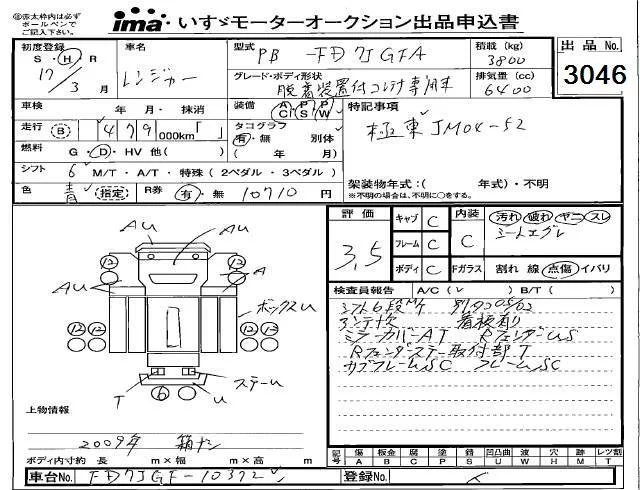 ※赤太枠内は必ず
ボールペンで
ご記入下さい。
ima いすゞモーターオークション出品申込書
初度登録 S・H・R 17/3月
車名 レンジャー
型式 PB-FD7JGFA
積載 (kg) 3800
出品No. 3046
グレード・ボディ形状 脱着装置付コンテナ専用車
排気量 (cc) 6400
車検 年・月・抹消
装備 A/C P/S P/W
特記事項
極東 JM04-52
走行 (B) 479 000km「 」
タコグラフ 有・無 別体 ( 年/ 月)
燃料 G・D・HV 他( )
シフト 6 M/T・A/T・特殊 (2ペダル・3ペダル)
架装物年式：( 年式)・不明
※不明の場合は、不明に○をする。
色 青 (指定) R券 有・無 10710円
評価 3.5
キャブ C
フレーム C
ボディ C
内装 C
汚れ 破れ ヤニ スレ
シートエグレ
Fガラス 割れ 線 点傷 イバリ
検査員報告 A/C(レ) B/T( )
シフト6段M/T 別タコ05/02
アンテナ欠 看板有り
ミラーカバーAT RフェンダーUS
Rフェンダステー取付部T
カブフレームSC フレームSC
AU
AU
12
12
AU
A
ボックスU
12
12
T
ステーU
6
U
上物情報
2009年 箱ナシ
ボディ内寸約 長 m×幅 m×高 m
記号 傷A 板金B 腐C 塗P 錆S 凹凸曲U 波W 穴H 跡M レツ割T
車台No. FD7JGF-10372
登録No.